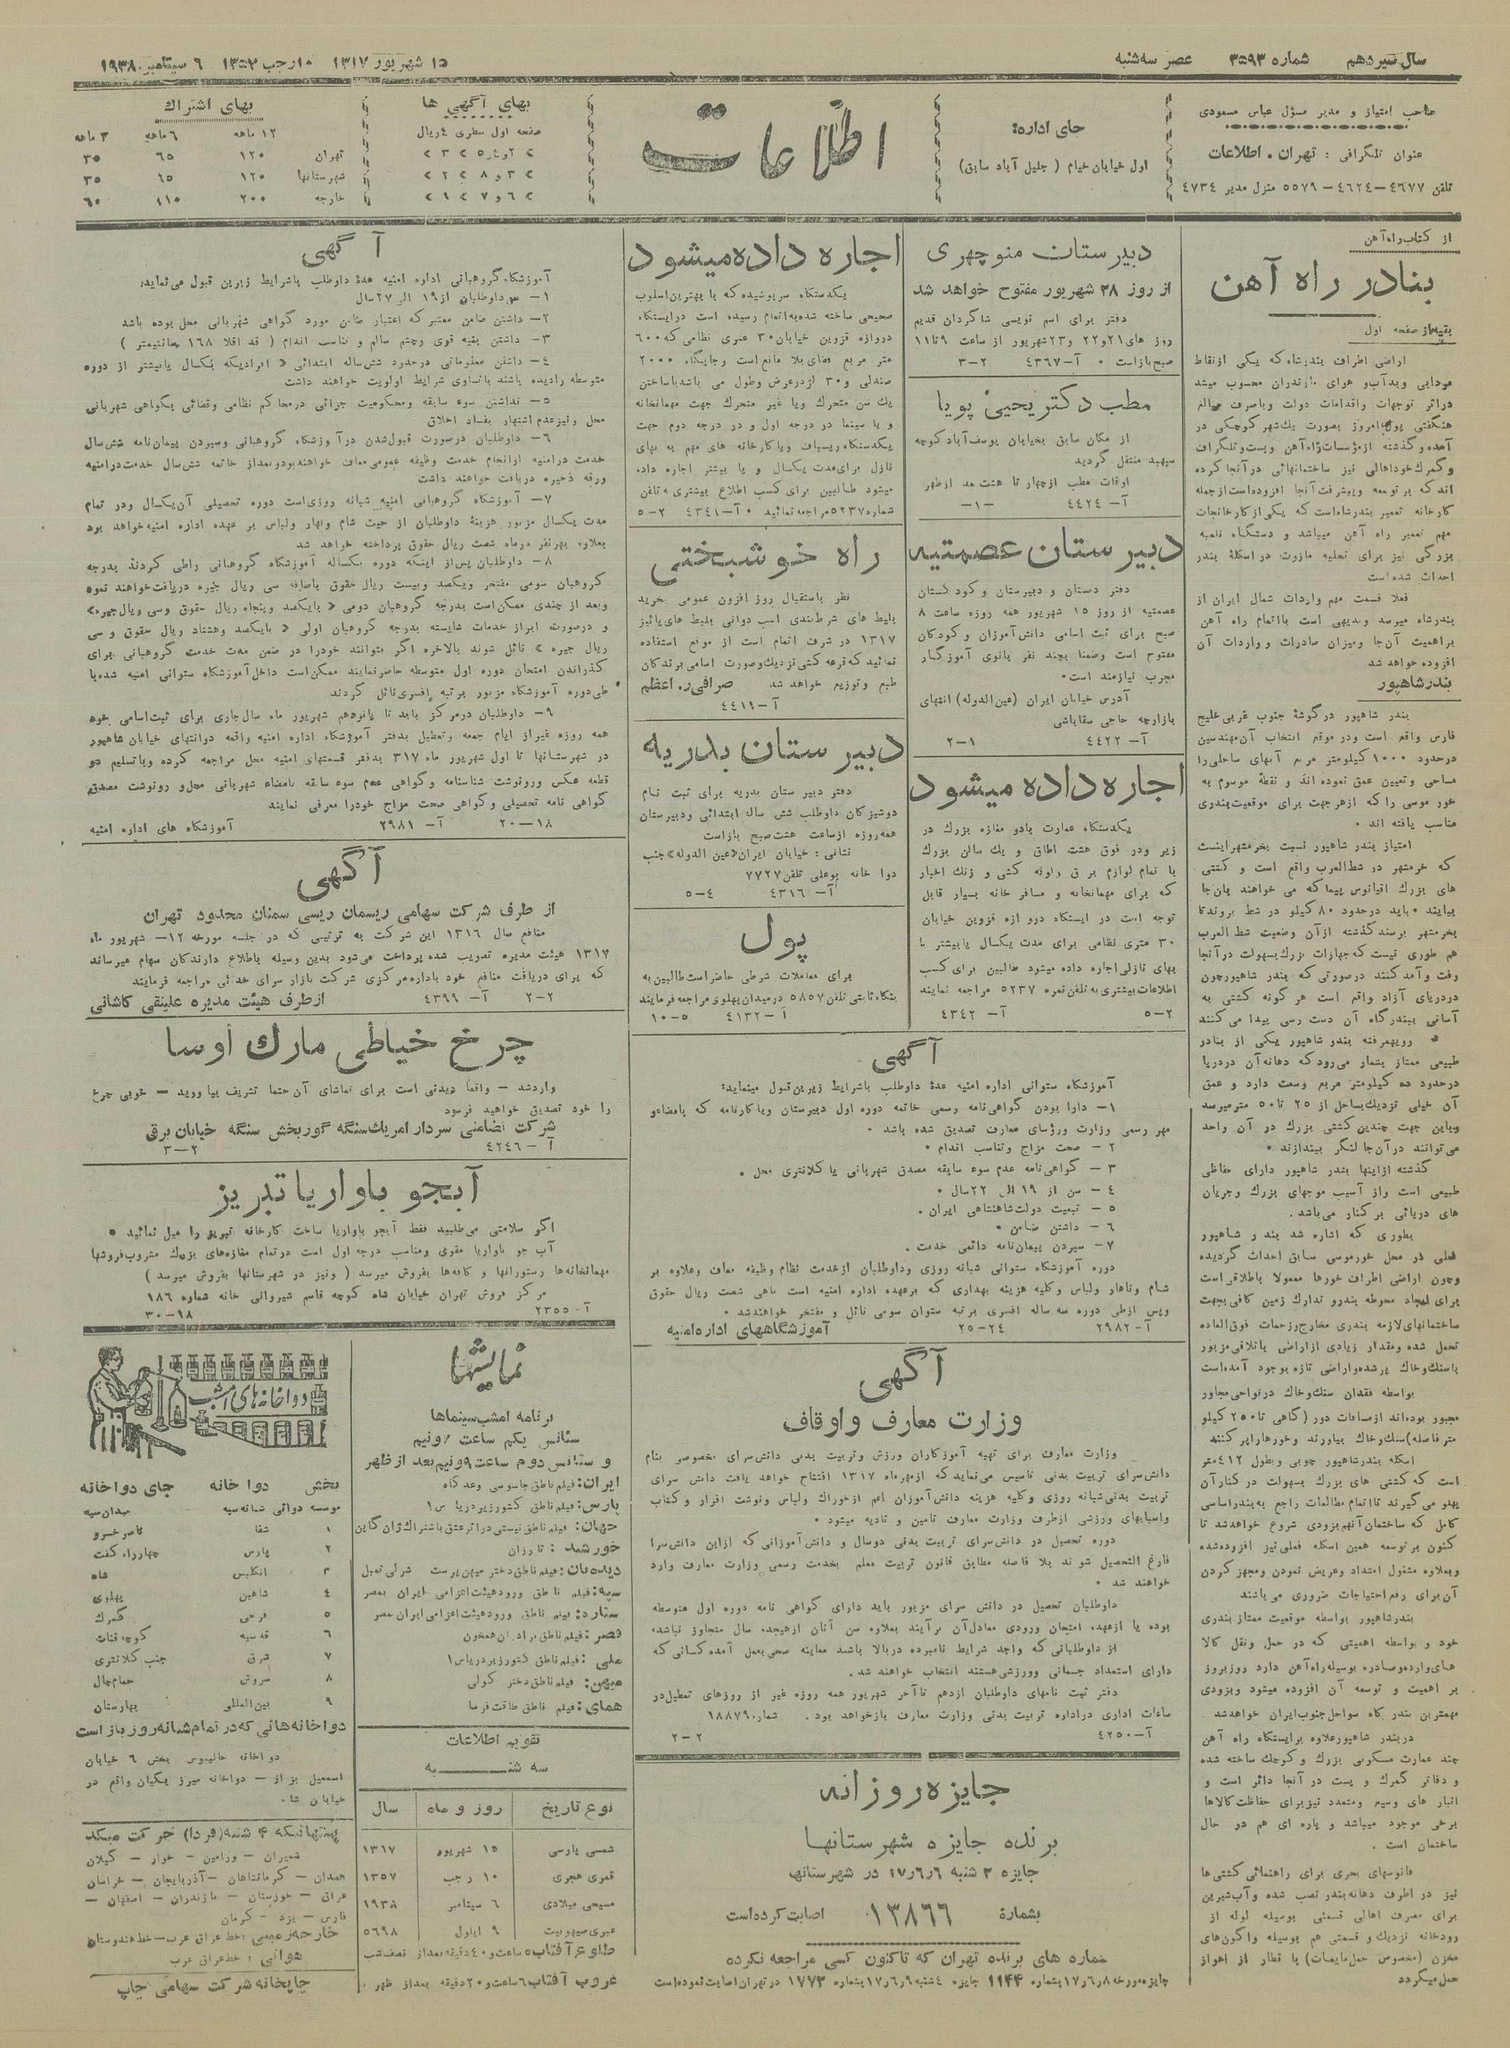 سال سیزدهم شماره ۳۵۹۳ عصر سه‌شنبه
۱۵ شهریور ۱۳۱۷ ۱۰ رجب ۱۳۵۷ ۶ سپتامبر ۱۹۳۸
صاحب امتیاز و مدیر مسئول عباس مسعودی
عنوان تلگرافی : تهران . اطلاعات
تلفن ۴۶۷۷–۴۶۲۴–۵۵۷۹ منزل مدیر ۴۷۳۴
جای اداره:
اول خیابان خیام ( جلیل آباد سابق)
اطلاعات
بهای آگهی ها
صفحه اول سطری ٤ریال
بهای اشتراك
۱۲ ماهه ۶ماهه ۳ ماهه
تهران ۱۲۰ ۶۵ ۳۵
شهرستانها ۱۲۰ ۶۵ ۳۵
خارجه ۲۰۰ ۱۱۰ ۶۰
از کتاب راه آهن
بنادر راه آهن
بقیه از صفحه اول
اراضی اطراف بندرشاه که یکی از نقاط
فعلا قسمت مهم واردات شمال ایران از
بندرشاه میرسد وبدیهی است بااتمام راه آهن
براهمیت آن‌جا ومیزان صادرات و واردات آن
افزوده خواهد شد
بندرشاهپور
بندر شاهپور درگوشهٔ جنوب غربی خلیج
فارس واقع است ودر موقع انتخاب آن مهندسین
مناسب یافته اند .
امتیاز بندر شاهپور نسبت بخرمشهر اینست
که خرمشهر در شط‌العرب واقع است و کشتی
های بزرك اقیانوس پیما که می خواهند بآن‌جا
بیایند باید درحدود ۸۰ کیلو در شط بروند تا
بخرمشهر برسند گذشته از آن وضعیت شط العرب
هم طوری نیست که جهازات بزرك بسهولت درآنجا
رفت وآمد کنند درصورتی که بندر شاهپور چون
دردریای آزاد واقع است هر گونه کشتی به
آسانی ببندرگاه آن دست رسی پیدا می‌کنند
رویهمرفته بندر شاهپور یکی از بنادر
طبیعی ممتاز بشمار می‌رود که دهانه آن دردریا
درحدود ده کیلومتر مربع وسعت دارد و عمق
آن خیلی نزدیك بساحل از ۲۵ تا ۵۰ مترمیرسد
وباین جهت چندین کشتی بزرك در آن واحد
می‌توانند درآن‌جا لنگر بیندازند .
گذشته ازاینها بندر شاهپور دارای حفاظی
طبیعی است واز آسیب موجهای بزرك وجریان
های دریائی برکنار می‌باشد .
بطوری که اشاره شد بندر شاهپور
فعلی در محل خورموسی سابق احداث گردیده
وچون اراضی اطراف خورها معمولا باطلاقی است
برای ایجاد محوطه بندر و تدارك زمین کافی بجهت
ساختمانهای لازمه بندری مخارج وزحمات فوق‌العاده
تحمل شده ومقدار زیادی ازاراضی باتلاقی مزبور
باسنك وخاك پرشده واراضی تازه بوجود آمده‌است
بواسطه فقدان سنك وخاك درنواحی مجاور
مجبور بوده‌اند ازمسافات دور (گاهی تا ۲۵۰ کیلو
متر فاصله) سنك وخاك بیاورند وخورهارا پرکنند
اسکله بندرشاهپور چوبی وبطول ۴۱۲ متر
است که کشتی های بزرك بسهولت درکنار آن
پهلو می‌گیرند تا اتمام مطالعات راجع به بندراساسی
کامل که ساختمان آنهم بزودی شروع خواهدشد تا
کنون بر توسعه همین اسکله فعلی نیز افزوده‌شده
وبعلاوه مشغول امتداد وعریض نمودن ومجهز کردن
آن برای رفع احتیاجات ضروری می‌باشند
بندرشاهپور بواسطه موقعیت ممتاز بندری
خود و بواسطه اهمیتی که در حمل ونقل کالا
های وارده وصادره بوسیله راه آهن دارد روزبروز
بر اهمیت و توسعه آن افزوده میشود وبزودی
مهمترین بندر گاه سواحل جنوب ایران خواهدشد
دربندر شاهپور علاوه برایستگاه راه آهن
چند عمارت مسکونی بزرك و کوچك ساخته شده
و دفاتر گمرك و پست در آنجا دائر است و
انبار های وسیع ومتعدد نیز برای حفاظت کالاها
برخی موجود میباشد و پاره ای هم در حال
ساختمان است .
فانوسهای بحری برای راهنمائی کشتی‌ها
نیز در اطراف دهانه بندر نصب شده وآب‌شیرین
برای مصرف اهالی قسمتی بوسیله لوله از
رودخانه نزدیك و قسمتی هم بوسیله واگون‌های
مخزن (مخصوص حمل مایعات) با قطار از اهواز
حمل میگردد
دبیرستان منوچهری
از روز ۲۸ شهریور مفتوح خواهد شد
دفتر برای اسم نویسی شاگردان قدیم
روز های ۲۱ و ۲۲ و ۲۳ شهریور از ساعت ۹ تا ۱۱
صبح باز است . آ–۴۳۶۷ ۲–۳
مطب دکتر یحیی پویا
از مکان سابق بخیابان یوسف آباد کوچه
سپهبد منتقل گردید
اوقات مطب ازچهار تا هشت بعد ازظهر
آ– ۴۴۲۴ –۱–
دبیرستان عصمتیه
دفتر دبستان و دبیرستان و کودکستان
عصمتیه از روز ۱۵ شهریور همه روزه ساعت ۸
صبح برای ثبت اسامی دانش‌آموزان و کودکان
مفتوح است وضمنا بچند نفر بانوی آموزگار
مجرب نیازمند است.
آدرس خیابان ایران (عین‌الدوله) انتهای
بازارچه حاجی سقاباشی
آ– ۴۴۲۲ ۱–۲
اجاره داده میشود
یکدستگاه عمارت بادو مغازه بزرك در
زیر ودر فوق هشت اطاق و یك سالن بزرك
با تمام لوازم برق و لوله کشی و زنك اخبار
که برای مهمانخانه و مسافر خانه بسیار قابل
توجه است در ایستگاه دروازه قزوین خیابان
۳۰ متری نظامی برای مدت یکسال یابیشتر با
بهای نازلی اجاره داده میشود طالبین برای کسب
اطلاعات بیشتری به تلفن نمره ۵۲۳۷ مراجعه نمایند
۲–۵ آ– ۴۳۴۲
اجاره داده میشود
یکدستگاه سرپوشیده که با بهترین اسلوب
صحیحی ساخته شده به اتمام رسیده است درایستگاه
دروازه قزوین خیابان ۳۰ متری نظامی که ۶۰۰
متر مربع فضای بلا مانع است وجایگاه ۲۰۰۰
صندلی و ۳۰ اذرعرض وطول می باشد باساختن
یك سن متحرك ویا غیر متحرك جهت مهمانخانه
و یا سینما در درجه اول و در درجه دوم جهت
یکدستگاه ریسباف ویا کارخانه های مهم به بهای
نازل برای مدت یکسال و یا بیشتر اجاره داده
میشود طالبین برای کسب اطلاع بیشتری به تلفن
شماره ۵۲۳۷ مراجعه نمائید . آ–۴۳۴۱ ۲–۵
راه خوشبختی
نظر باستقبال روز افزون عمومی خرید
بلیط های شرط‌بندی اسب دوانی بلیط های پائیز
۱۳۱۷ در شرف اتمام است از موقع استفاده
نمائید که قرعه کشی نزدیك وصورت اسامی برندگان
طبع وتوزیع خواهد شد صرافی ر. اعظم
آ– ۴۴۱۹
دبیرستان بدریه
دفتر دبیرستان بدریه برای ثبت نام
دوشیزگان داوطلب شش ساله ابتدائی ودبیرستان
همه‌روزه ازساعت هشت صبح بازاست
نشانی: خیابان ایران«عین الدوله»جنب
دوا خانه بوعلی تلفن ۷۷۲۷
آ– ۴۳۱۶ ۴–۵
پول
برای معاملات شرطی حاضر است طالبین به
بنگاه ثابتی تلفن ۵۸۵۷ درمیدان پهلوی مراجعه فرمایند
آ–۴۱۳۲ ۵–۱۰
آگهی
آموزشگاه ستوانی اداره امنیه عدهٔ داوطلب باشرایط زیرین قبول مینماید:
۱– دارا بودن گواهی‌نامه رسمی خاتمه دوره اول دبیرستان ویا کارنامه که بامضاء و
مهر رسمی وزارت ورؤسای معارف تصدیق شده باشد .
۲ – صحت مزاج وتناسب اندام .
۳ – گواهی‌نامه عدم سوء سابقه مصدق شهربانی یا کلانتری محل .
۴ – سن از ۱۹ الی ۲۲ سال .
۵ – تبعیت دولت شاهنشاهی ایران .
۶ – داشتن ضامن .
۷– سپردن پیمان‌نامه دائمی خدمت .
دوره آموزشگاه ستوانی شبانه روزی وداوطلبان ازخدمت نظام وظیفه معاف وعلاوه بر
شام وناهار ولباس وکلیه هزینه بهداری که برعهده اداره امنیه است ماهی شصت ریال حقوق
وپس ازطی دوره سه ساله افسری برتبه ستوان سومی نائل و مفتخر خواهندشد .
آ– ۲۹۸۲ ۲۴–۲۵ آموزشگاههای اداره امنیه
آگهی
وزارت معارف و اوقاف
وزارت معارف برای تهیه آموزگاران ورزش وتربیت بدنی دانش‌سرای مخصوص بنام
دانش‌سرای تربیت بدنی تاسیس می‌نماید که ازمهرماه ۱۳۱۷ افتتاح خواهد یافت دانش سرای
تربیت بدنی شبانه روزی وکلیه هزینه دانش‌آموزان اعم ازخوراك ولباس ونوشت افزار و کتاب
واسبابهای ورزشی ازطرف وزارت معارف تامین و تادیه میشود .
دوره تحصیل در دانش سرای تربیت بدنی دوسال و دانش‌آموزانی که ازاین دانش‌سرا
فارغ التحصیل شوند بلا فاصله مطابق قانون تربیت معلم بخدمت رسمی وزارت معارف وارد
خواهند شد .
داوطلبان تحصیل در دانش سرای مزبور باید دارای گواهی نامه دوره اول متوسطه
بوده یا ازعهده امتحان ورودی معادل آن برآیند بعلاوه سن آنان ازهیجده سال متجاوز نباشد.
از داوطلبانی که واجد شرایط نامبرده دربالا باشند معاینه صحی بعمل آمده کسانی که
دارای استعداد جسمانی وورزشی هستند انتخاب خواهند شد .
دفتر ثبت نامهای داوطلبان ازدهم تاآخر شهریور همه روزه غیر از روزهای تعطیل در
ساعات اداری دراداره تربیت بدنی وزارت معارف بازخواهد بود . شماره ۱۸۸۷۹
آ–۴۲۵۰ ۲–۲
جایزه روزانه
برنده جایزه شهرستانها
جایزه ۲ شنبه ۱۷٫۶٫۶ در شهرستانها
بشماره ۱۳۸۶۶ اصابت کرده‌است
شماره های برنده تهران که تاکنون کسی مراجعه نکرده
جایزه مورخه ۱۷٫۶٫۸ بشماره ۱۱۴۴ جایزه ٤شنبه ۱۷٫۶٫۹ بشماره ۱۷۷۳ درتهران اصابت نموده‌است
آگهی
آموزشگاه گروهبانی اداره امنیه عدهٔ داوطلب باشرایط زیرین قبول می‌نماید:
۱– سن داوطلبان از ۱۹ الی ۲۷ سال
۲– داشتن ضامن معتبر که اعتبار ضامن مورد گواهی شهربانی محل بوده باشد
۳ – داشتن بنیه قوی وچشم سالم و تناسب اندام ( قد اقلا ۱۶۸ سانتیمتر )
۴ – داشتن معلوماتی درحدود شش‌ساله ابتدائی « افرادیکه یکسال یابیشتر از دوره
متوسطه رادیده باشند باتساوی شرایط اولویت خواهند داشت
۵ – نداشتن سوء سابقه ومحکومیت جزائی درمحاکم نظامی وقضائی بگواهی شهربانی
محل ونیز عدم اشتهار بفساد اخلاق
۶– داوطلبان درصورت قبول‌شدن درآموزشگاه گروهبانی وسپردن پیمان‌نامه شش‌سال
خدمت درامنیه ازانجام خدمت وظیفه عمومی معاف خواهند بود و بعداز خاتمه شش‌سال خدمت درامنیه
ورقه ذخیره دریافت خواهند داشت
۷– آموزشگاه گروهبانی امنیه شبانه روزی‌است دوره تحصیلی آن یکسال ودر تمام
مدت یکسال مزبور هزینهٔ داوطلبان از حیث شام ونهار ولباس بر عهده اداره امنیه‌خواهد بود
بعلاوه بهرنفر درماه شصت ریال حقوق پرداخته خواهد شد
۸– داوطلبان پس‌از اینکه دوره یکساله آموزشگاه گروهبانی راطی کردند بدرجه
گروهبان سومی مفتخر ویکصد وبیست ریال حقوق باضافه سی ریال جیره دریافت‌خواهند نمود
وبعد از چندی ممکن‌است بدرجه گروهبان دومی « بایکصد وپنجاه ریال حقوق وسی ریال جیره»
و درصورت ابراز خدمات شایسته بدرجه گروهبان اولی « بایکصد وهشتاد ریال حقوق و سی
ریال جیره » نائل شوند بالاخره اگر بتوانند خودرا در ضمن مدت خدمت گروهبانی برای
گذراندن امتحان دوره اول متوسطه حاضرنمایند ممکن‌است داخل آموزشگاه ستوانی امنیه شده با
طی دوره آموزشگاه مزبور برتبه افسری نائل گردند
۹– داوطلبان درمرکز باید تا پانزدهم شهریور ماه سال جاری برای ثبت‌اسامی خود
همه روزه غیراز ایام جمعه وتعطیل بدفتر آموزشگاه اداره امنیه واقعه درانتهای خیابان شاهپور
در شهرستانها تا اول شهریور ماه ۳۱۷ بدفتر قسمتهای امنیه محل مراجعه کرده وباتسلیم دو
قطعه عکس ورونوشت شناسنامه وگواهی عدم سوء سابقه بامضاء شهربانی محل و رونوشت مصدق
گواهی نامه تحصیلی و گواهی صحت مزاج خودرا معرفی نمایند
۱۸–۲۰ آ– ۲۹۸۱ آموزشگاه های اداره امنیه
آگهی
از طرف شرکت سهامی ریسمان ریسی سمنان محدود تهران
منافع سال ۱۳۱۶ این شرکت به ترتیبی که در جلسه مورخه ۱۲– شهریور ماه
۱۳۱۷ هیئت مدیره تصویب شده پرداخت می‌شود بدین وسیله باطلاع دارندگان سهام میرساند
که برای دریافت منافع خود باداره مرکزی شرکت بازار سرای مراجعه فرمایند
۲–۲ آ– ۴۳۹۹ ازطرف هیئت مدیره علینقی کاشانی
چرخ خیاطی مارك اوسا
واردشد – واقعاً دیدنی است برای تماشای آن حتماً تشریف بیاورید – خوبی چرخ
را خود تصدیق خواهید فرمود
شرکت تضامنی سردار امریك‌سنگه گوربخش سنگه خیابان برق
آ – ۴۲۴۶ ۲–۳
آبجو باواریا تبریز
اگر سلامتی می‌طلبید فقط آبجو باواریا ساخت کارخانه تبریز را میل نمائید .
آب جو باواریا مقوی ومناسب درجه اول است درتمام مغازه‌های بزرك مشروب‌فروشها
مهمانخانه‌ها رستورانها و کافه‌ها بفروش میرسد ( ونیز در شهرستانها بفروش میرسد )
مرکز فروش تهران خیابان شاه کوچه قاسم شیروانی خانه شماره ۱۸۶
آ–۲۳۵۵ ۱۸–۳۰
نمایشها
برنامه امشب سینماها
سئانس یکم ساعت ۷ ونیم
و سئانس دوم ساعت ۹ ونیم بعد از ظهر
ایران: فیلم ناطق جاسوسی وعده گاه
پارس: فیلم ناطق کشور زیر دریا س۱
خورشید : تارزان
دیده‌بان: فیلم ناطق دختر میهن پرست شرلی تمپل
سپه: فیلم ناطق ورود هیئت اعزامی ایران بمصر
ستاره: فیلم ناطق ورود هیئت اعزامی ایران بمصر
قصر: فیلم ناطق برادران همخون
ملی: فیلم ناطق کشور زیر دریا س۱
میهن: فیلم ناطق دختر کولی
همای: فیلم ناطق طاقت فرسا
تقویم اطلاعات
سه شنبه
نوع تاریخ روز و ماه سال
شمسی پارسی ۱۵ شهریور ۱۳۱۷
قمری هجری ۱۰ رجب ۱۳۵۷
مسیحی میلادی ۶ سپتامبر ۱۹۳۸
عبری صهیونیت ۹ ایلول ۵۶۹۸
طلوع آفتاب ۵ساعت و ۴۰دقیقه بعداز نصف شب
غروب آفتاب ۶ساعت و ۲۰دقیقه بعداز ظهر
دواخانه‌های امشب
بخش دوا خانه جای دواخانه
موسسه دوائی شبانه سپه میدان سپه
۱ شفا ناصر خسرو
۲ پارس چهارراه گفت
۳ انگلیس شاه
۴ شاهین پهلوی
۵ فرخی گمرك
۶ قدسیه کوچه قنات
۷ شرق جنب کلانتری
۸ سروش حمام چال
۹ بین‌المللی بهارستان
دواخانه هائی که در تمام شبانه روز باز است
دواخانه جالینوس بخش ۶ خیابان
اسمعیل بزاز – دواخانه میرزایکیان واقع در
خیابان شاه.
پستهائیکه ۴ شنبه (فردا) حرکت میکند
شمیران – ورامین – خوار – گیلان
همدان – کرمانشاهان – آذربایجان – خراسان
عراق – خوزستان – مازندران – اصفهان –
فارس – یزد – کرمان
خارجه زمینی: خط عراق عرب–خط هندوستان
هوائی: خط عراق عرب
چاپخانه شرکت سهامی چاپ